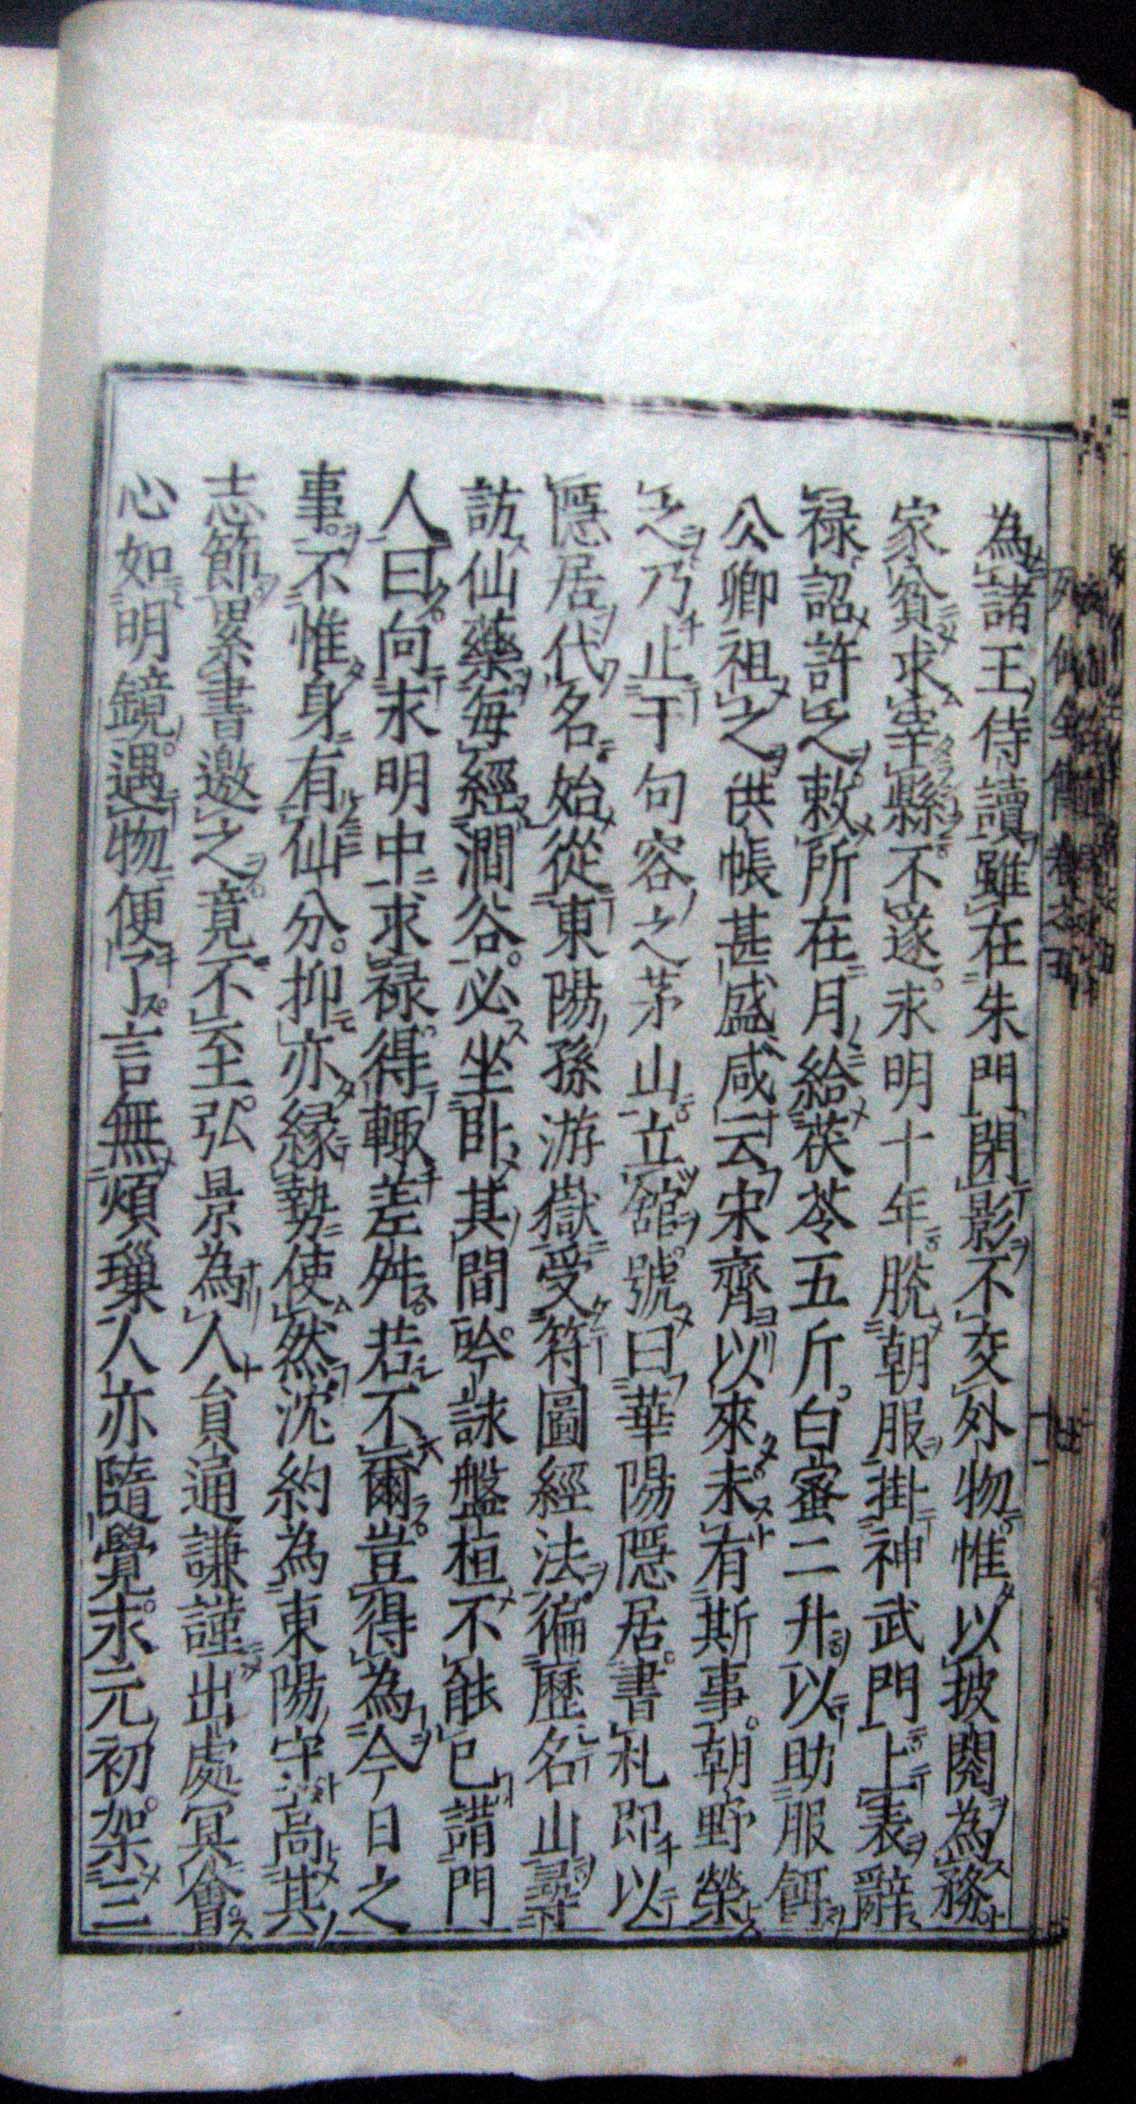 為諸王侍讀雖在朱門閉影不交外物惟以披閱為務
家貧求宰縣不遂求明十年脫朝服掛神武門上表辭
禄詔許之敕所在月給茯苓五斤白蜜二升以助服餌
公卿祖之供帳甚盛咸云宋齊以來未有斯事朝野榮
之乃止于句容之茅山立舘號曰華陽隱居書札即以
隱居代名始從東陽孫游嶽受符圖經法徧歷名山尋
訪仙藥每經澗谷必坐卧其間吟詠盤桓不能已謂門
人曰向求明中求禄得輙差舛若不爾豈得為今日之
事不惟身有仙分抑亦緣勢使然沈約為東陽守高其
志節累書邀之竟不至弘景為人員通謙謹出處冥會
心如明鏡遇物便了言無煩瓅人亦隨覺求元初架三